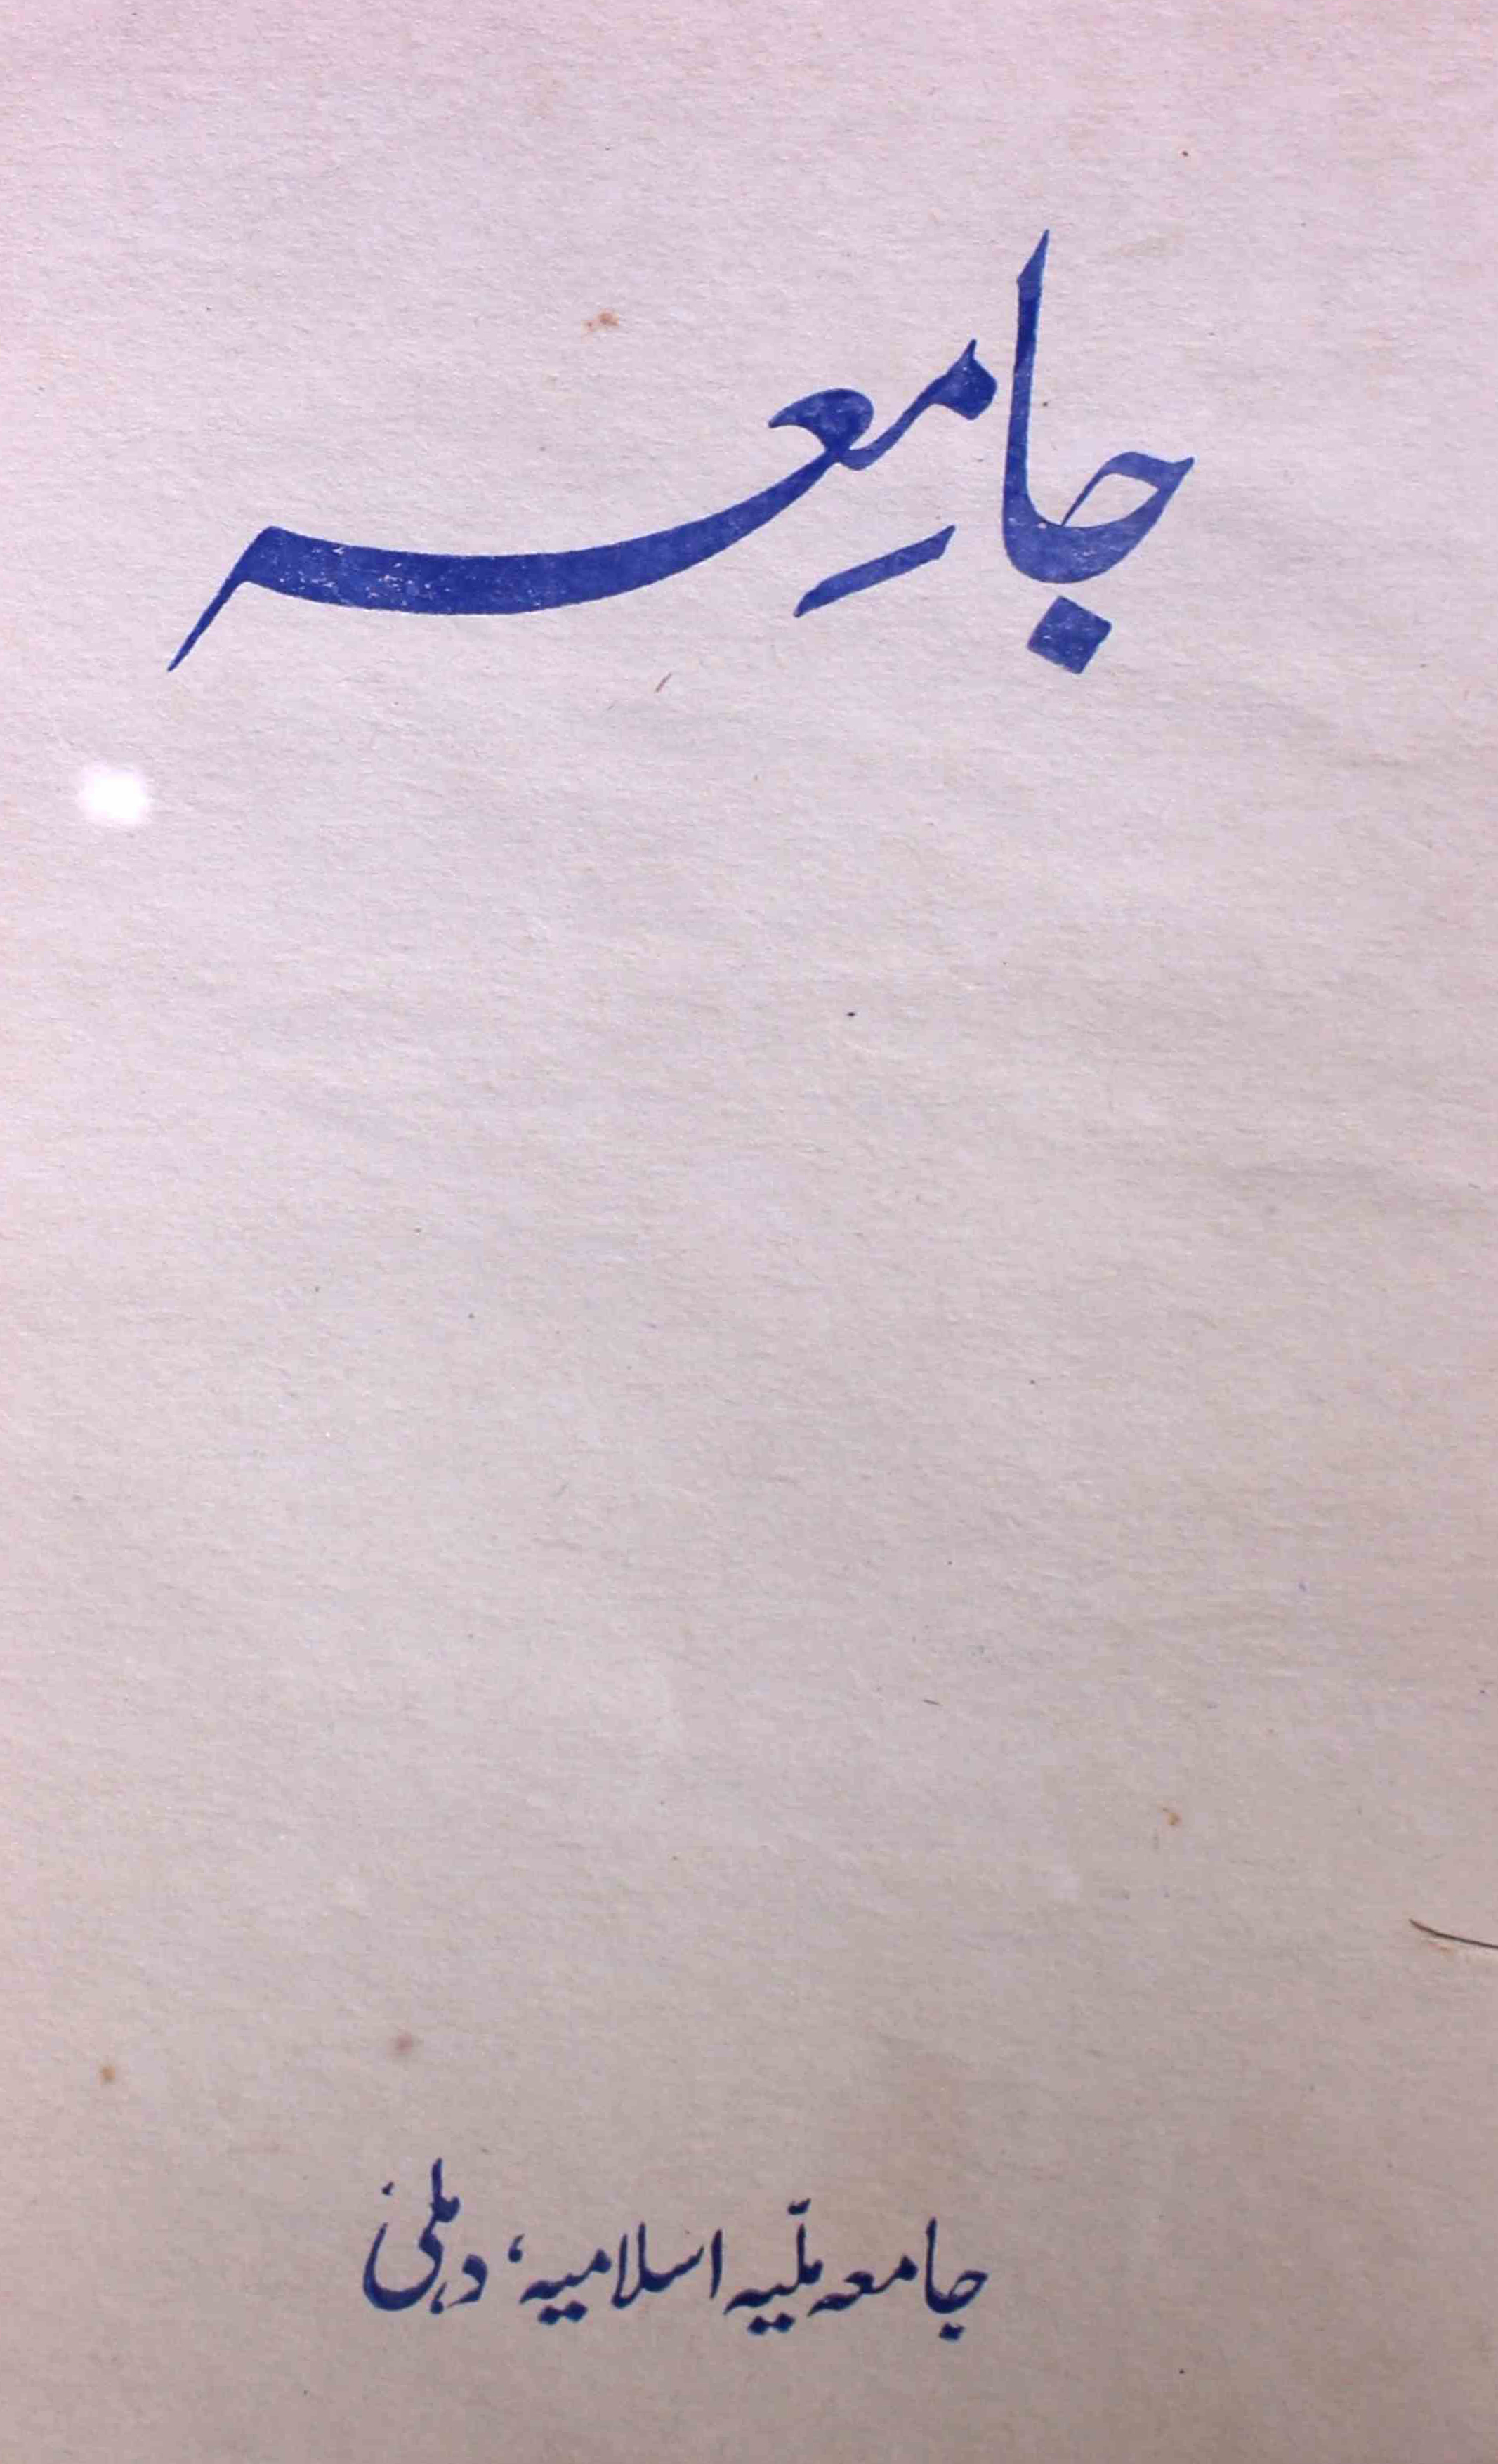 جامِعہ
جامعہ ملّیہ اسلامیہ، دہلی